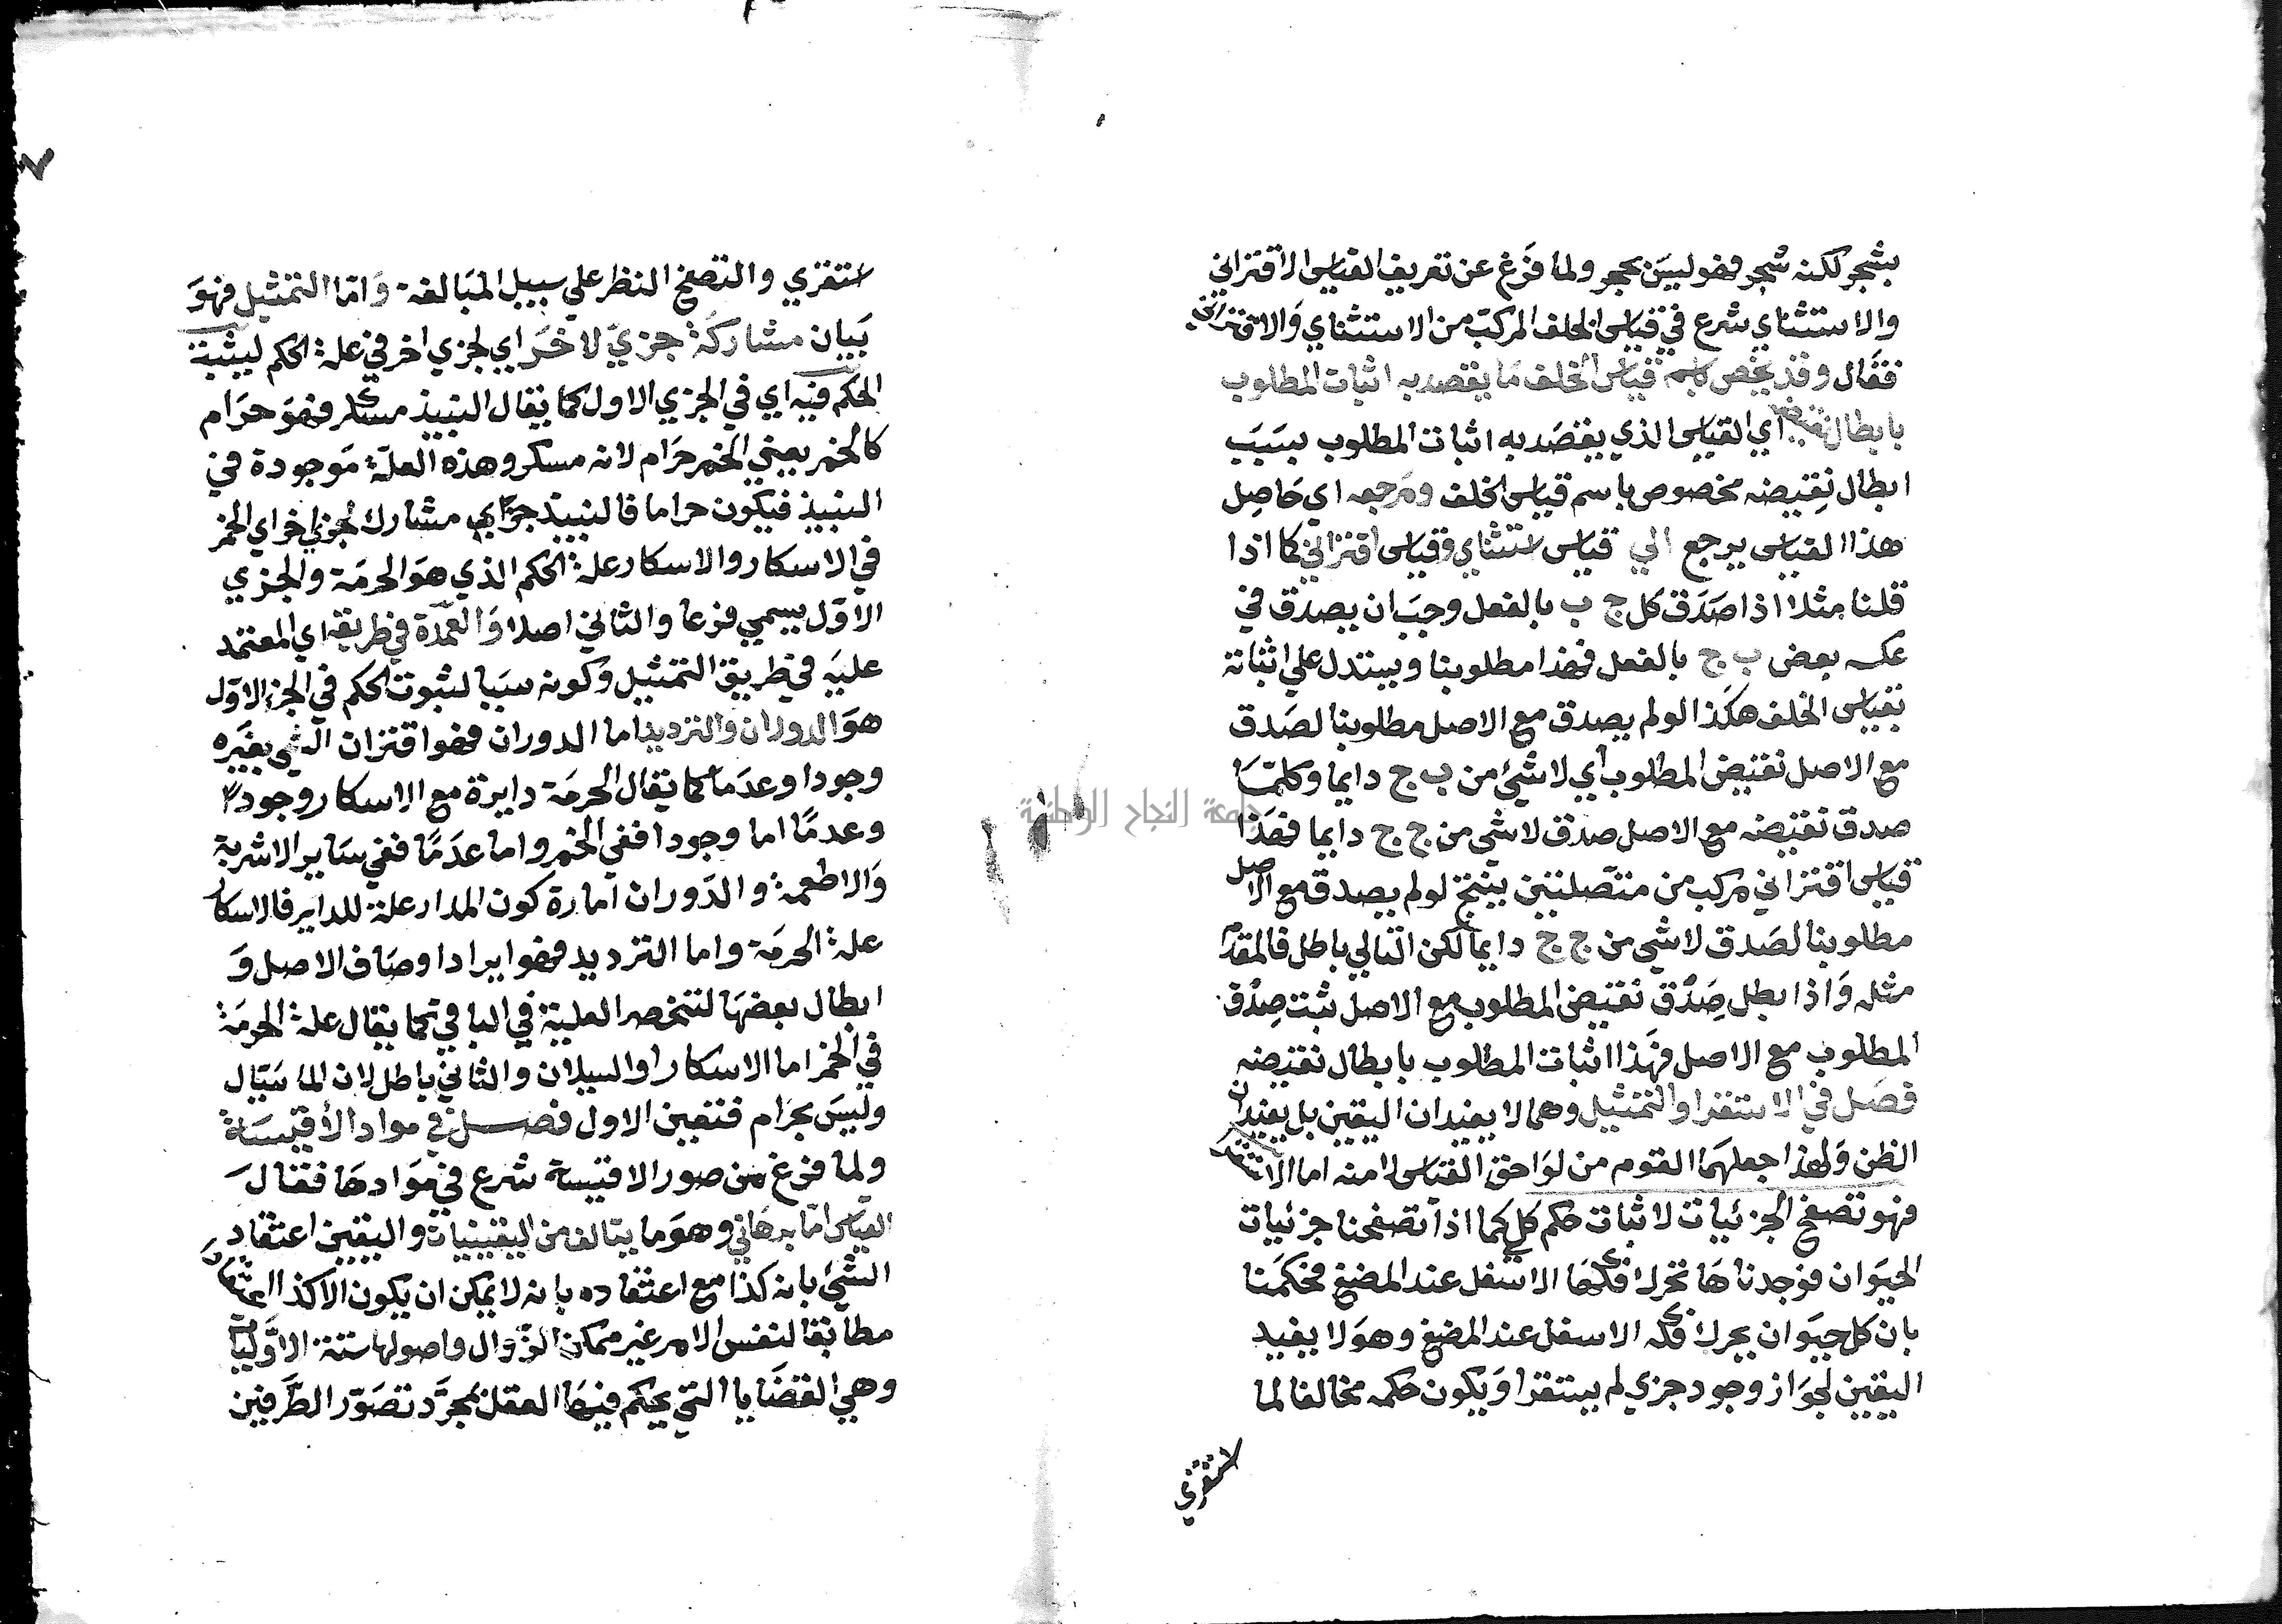 بشجر لكنه شجر فهو ليس بحجر ولما فرغ عن تعريف القياس الاقتراني
والاستثناي شرع في قياس الخلف المركب من الاستثناي والاقتراني
فقال وقد يخص باسم قياس الخلف ما يقصد به اثبات المطلوب
بابطال نقيضه اي القياس الذي يقصد به اثبات المطلوب بسبب
ابطال نقيضه مخصوص باسم قياس الخلف ومرجعه اي حاصل
هذا القياس يرجع الي قياس استثناي وقياس اقتراني كما اذا
قلنا مثلا اذا صدق كل ج ب بالفعل وجب ان يصدق في
عكسه بعض ب ج بالفعل فهذا مطلوبنا ويستدل علي اثباته
بقياس الخلف هكذا لو لم يصدق مع الاصل مطلوبنا لصدق
مع الاصل نقيض المطلوب أي لا شيء من ب ج دايما وكلما
صدق نقيضه مع الاصل صدق لا شي من ج ج دايما فهذا
قياس اقتراني مركب من متصلتين ينتج لو لم يصدق مع الاصل
مطلوبنا لصدق لا شي من ج ج دايما لكن التالي باطل فالمقدم
مثله واذا بطل صدق نقيض المطلوب مع الاصل ثبت صدق
المطلوب مع الاصل فهذا اثبات المطلوب بابطال نقيضه
فصل في الاستقرا والتمثيل وهما لا يفيدان اليقين بل يفيدان
الظن ولهذا جعلهما القوم من لواحق القياس لا منه اما الاستقرا
فهو تصفح الجزئيات لاثبات حكم كلي كما اذا تصفحنا جزئيات
الحيوان فوجدناها تحرك فكها الاسفل عند المضغ فحكمنا
بان كل حيوان يحرك فكه الاسفل عند المضغ وهو لا يفيد
اليقين لجواز وجود جزي لم يستقرا ويكون حكمه مخالفا لما
استقري
٧
استقري والتصفح النظر علي سبيل المبالغة واما التمثيل فهو
بيان مشاركة جزي لاخر اي لجزي اخر في علة الحكم ليثبت
الحكم فيه اي في الجزي الاول كما يقال النبيذ مسكر فهو حرام
كالخمر يعني الخمر حرام لانه مسكر وهذه العلة موجودة في
النبيذ فيكون حراما فالنبيذ جزي مشارك لجزي اخر اي الخمر
في الاسكار والاسكار علة الحكم الذي هو الحرمة والجزي
الاول يسمي فرعا والثاني اصلا والعمدة في طريقه اي المعتمد
عليه في طريق التمثيل وكونه سببا لثبوت الحكم في الجزء الاول
هو الدوران والترديد اما الدوران فهو اقتران الشي بغيره
وجودا وعدما كما يقال الحرمة دايرة مع الاسكار وجودا
وعدما اما وجودا ففي الخمر واما عدما ففي ساير الاشربة
والاطعمة والدوران امارة كون المدار علة للداير فالاسكار
علة الحرمة واما الترديد فهو ايراد اوصاف الاصل و
ابطال بعضها لتنحصر العلية في الباقي كما يقال علة الحرمة
في الخمر اما الاسكار او السيلان والثاني باطل لان الما سيال
وليس بحرام فتعين الاول فصل في مواد الأقيسة
ولما فرغ من صور الاقيسة شرع في موادها فقال
القياس اما برهاني وهو ما يتالف من اليقينيات واليقين اعتقاد
الشيء بانه كذا مع اعتقاده بانه لا يمكن ان يكون الا كذا
مطابقا لنفس الامر غير ممكن الزوال واصولها ستة الاوليات
وهي القضايا التي يحكم فيها العقل بمجرد تصور الطرفين
جامعة النجاح الوطنية